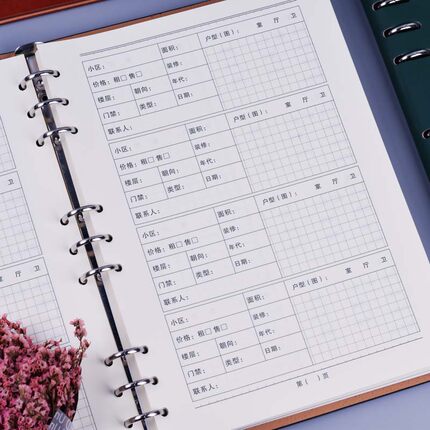 小区： 面积： 户型（图）： 室 厅 卫
价格：租□ 售□ 装修：
楼层： 朝向： 年代：
门禁： 类型： 日期：
联系人：
小区： 面积： 户型（图）： 室 厅 卫
价格：租□ 售□ 装修：
楼层： 朝向： 年代：
门禁： 类型： 日期：
联系人：
小区： 面积： 户型（图）： 室 厅 卫
价格：租□ 售□ 装修：
楼层： 朝向： 年代：
门禁： 类型： 日期：
联系人：
小区： 面积： 户型（图）： 室 厅 卫
价格：租□ 售□ 装修：
楼层： 朝向： 年代：
门禁： 类型： 日期：
联系人：
第（ ）页
室 厅 卫
厅 卫